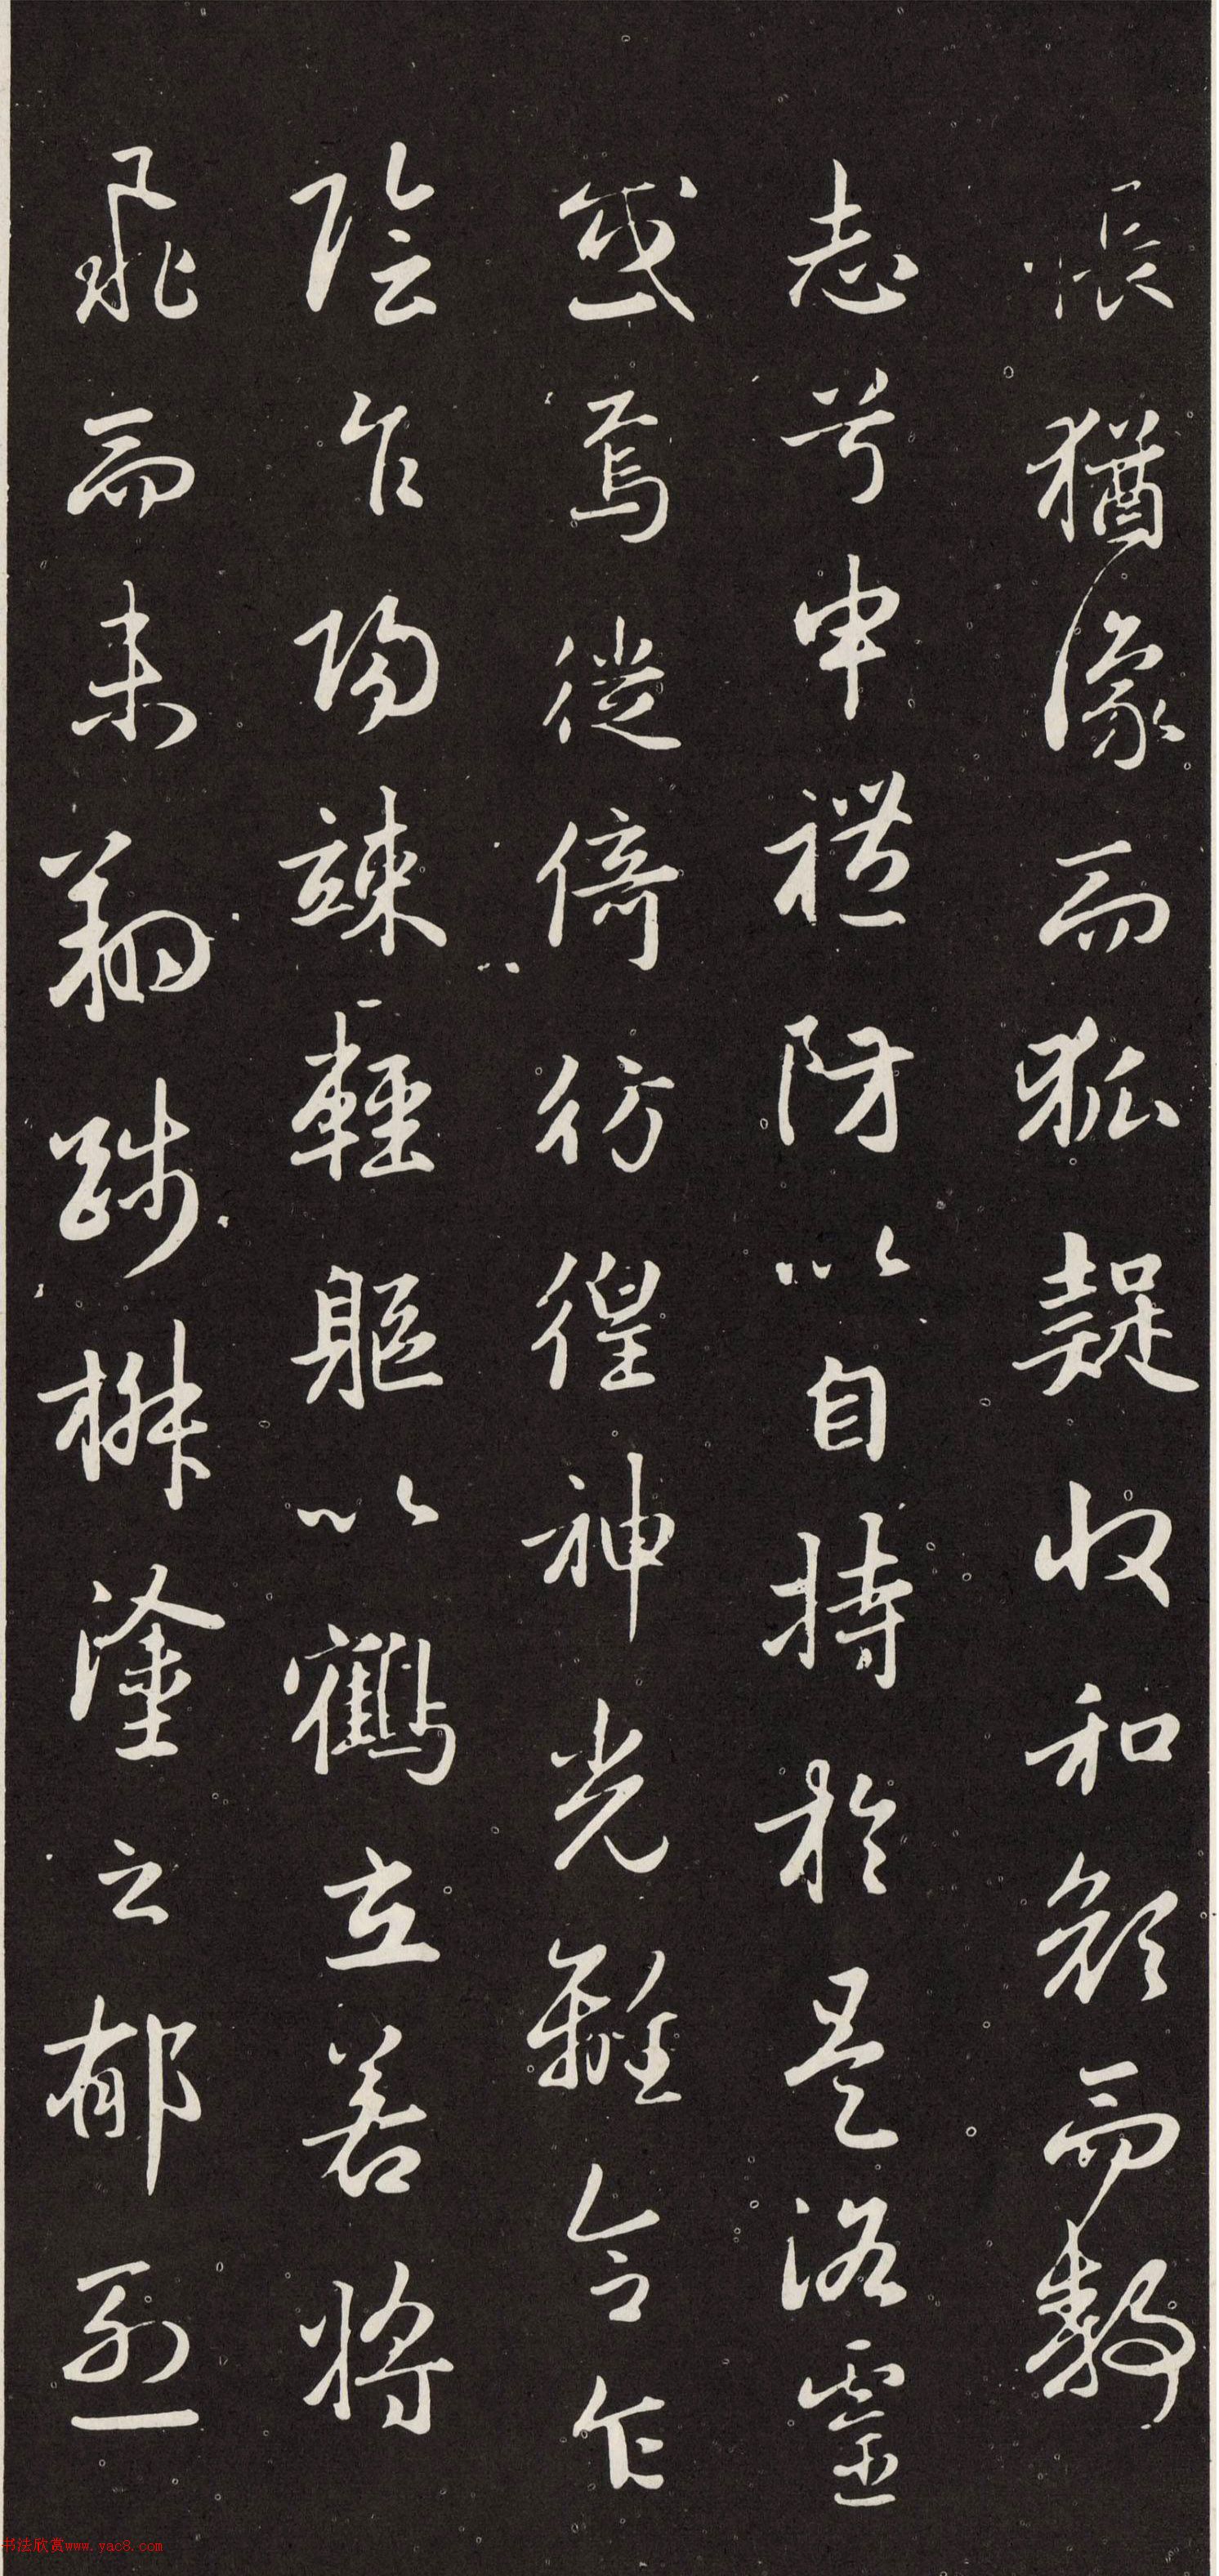 悵猶豫而狐疑收和顔而靜
志兮申禮防以自持於是洛靈
感焉徙倚彷徨神光離合乍
陰乍陽竦輕軀以鶴立若將
飛而未翔踐椒塗之郁烈
书法欣赏www.yac8.com